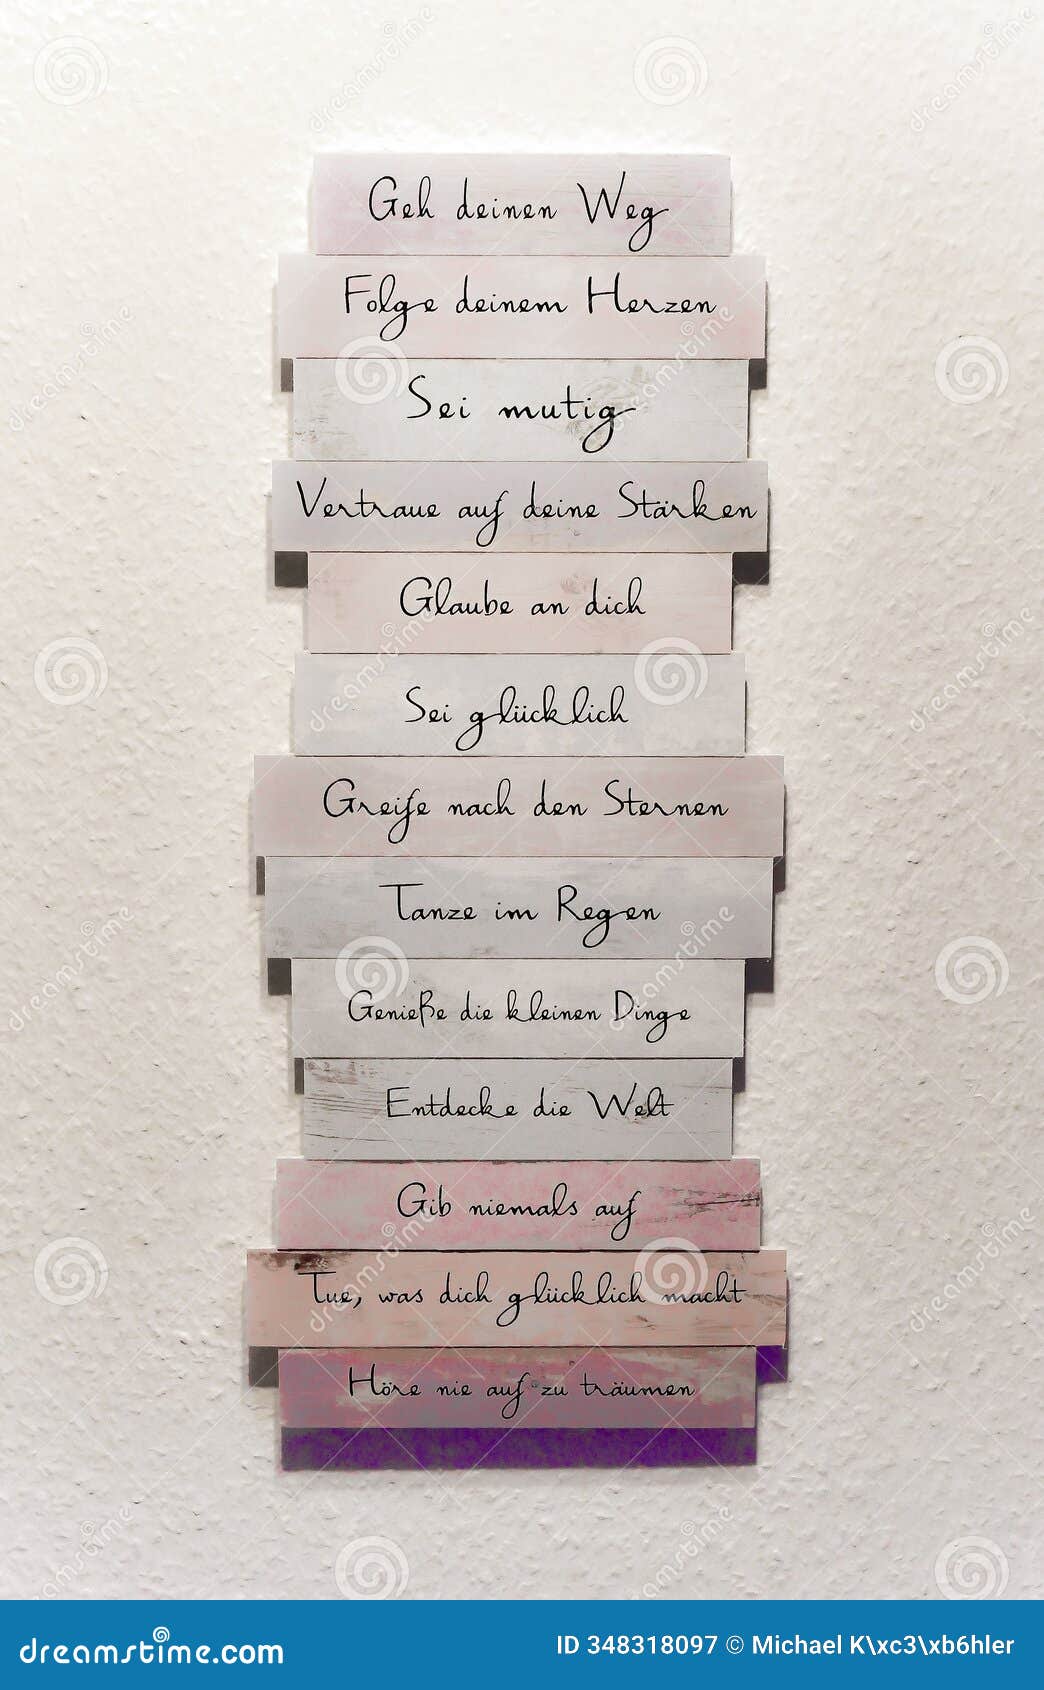 Geh deinen Weg
Folge deinem Herzen
Sei mutig
Vertraue auf deine Stärken
Glaube an dich
Sei glücklich
Greife nach den Sternen
Tanze im Regen
Genieße die kleinen Dinge
Entdecke die Welt
Gib niemals auf
Tue, was dich glücklich macht
Höre nie auf zu träumen
dreamstime.com
ID 348318097 © Michael K\xc3\xb6hler